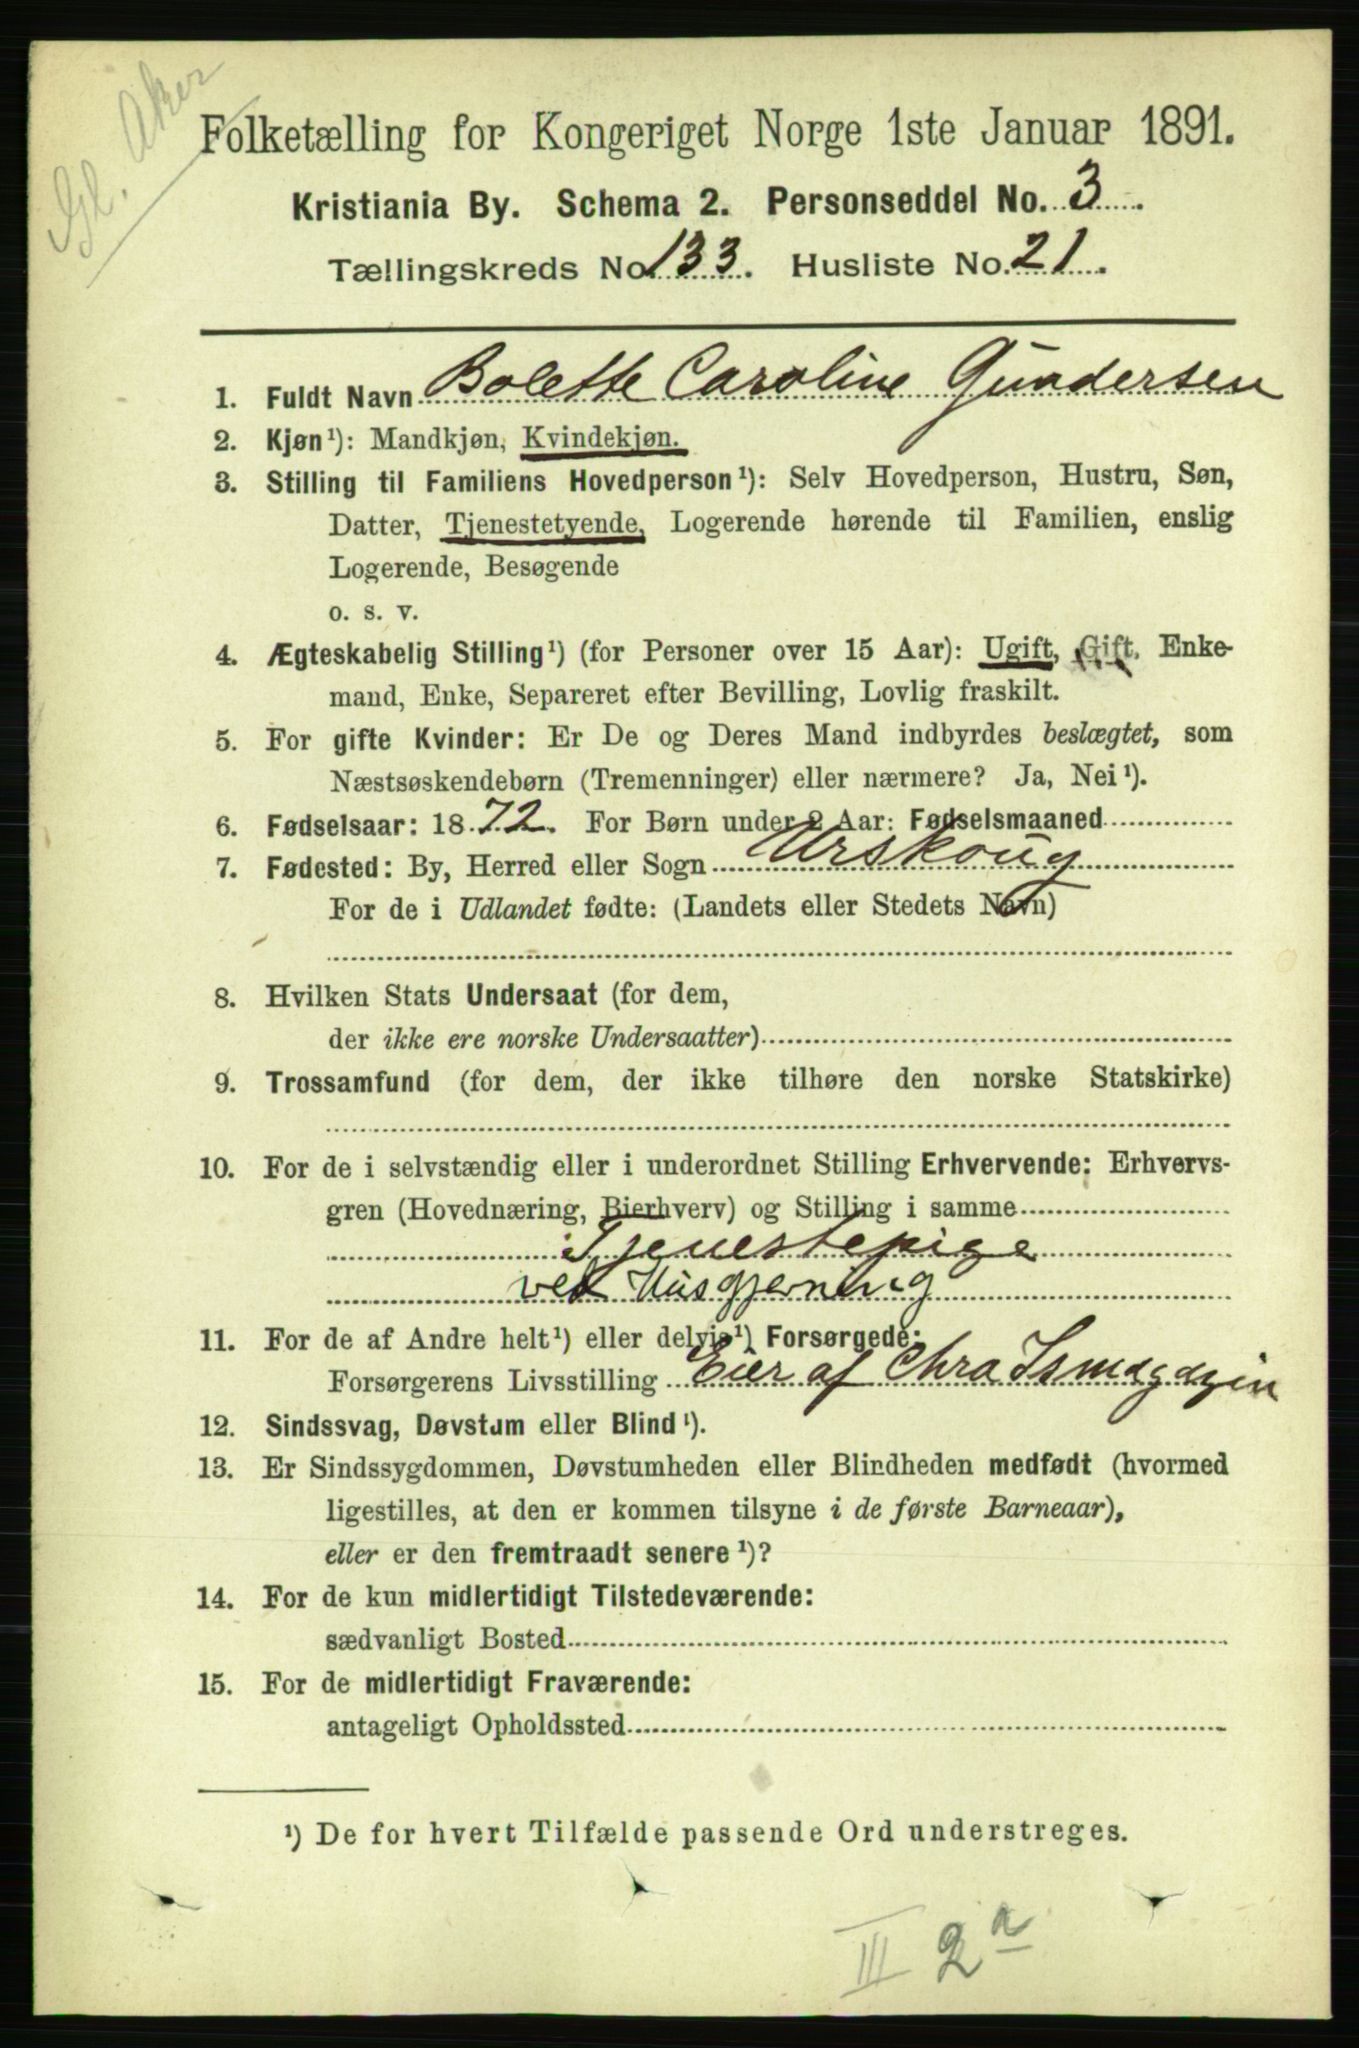 Gl. Aker
Folketælling for Kongeriget Norge 1ste Januar 1891.
Kristiania By. Schema 2. Personseddel No. 3.
Tællingskreds No 133. Husliste No. 21.
1. Fuldt Navn Bolette Caroline Gundersen
2. Kjøn¹): Mandkjøn, Kvindekjøn.
3. Stilling til Familiens Hovedperson¹): Selv Hovedperson, Hustru, Søn,
Datter, Tjenestetyende, Logerende hørende til Familien, enslig
Logerende, Besøgende
o. s. v.
4. Ægteskabelig Stilling¹) (for Personer over 15 Aar): Ugift, Gift, Enke-
mand, Enke, Separeret efter Bevilling, Lovlig fraskilt.
5. For gifte Kvinder: Er De og Deres Mand indbyrdes beslægtet, som
Næstsøskendebørn (Tremenninger) eller nærmere? Ja, Nei¹).
6. Fødselsaar: 1872. For Børn under 2 Aar: Fødselsmaaned
7. Fødested: By, Herred eller Sogn Urskoug
For de i Udlandet fødte: (Landets eller Stedets Navn)
8. Hvilken Stats Undersaat (for dem,
der ikke ere norske Undersaatter)
9. Trossamfund (for dem, der ikke tilhøre den norske Statskirke)
10. For de i selvstændig eller i underordnet Stilling Erhvervende: Erhvervs-
gren (Hovednæring, Bierhverv) og Stilling i samme
Tjenestepige
ved Husgjerning
11. For de af Andre helt¹) eller delvis¹) Forsørgede:
Forsørgerens Livsstilling Eier af Chra Ismagazin
12. Sindssvag, Døvstum eller Blind¹).
13. Er Sindssygdommen, Døvstumheden eller Blindheden medfødt (hvormed
ligestilles, at den er kommen tilsyne i de første Barneaar),
eller er den fremtraadt senere¹)?
14. For de kun midlertidigt Tilstedeværende:
sædvanligt Bosted
15. For de midlertidigt Fraværende:
antageligt Opholdssted
¹) De for hvert Tilfælde passende Ord understreges.
III 2a